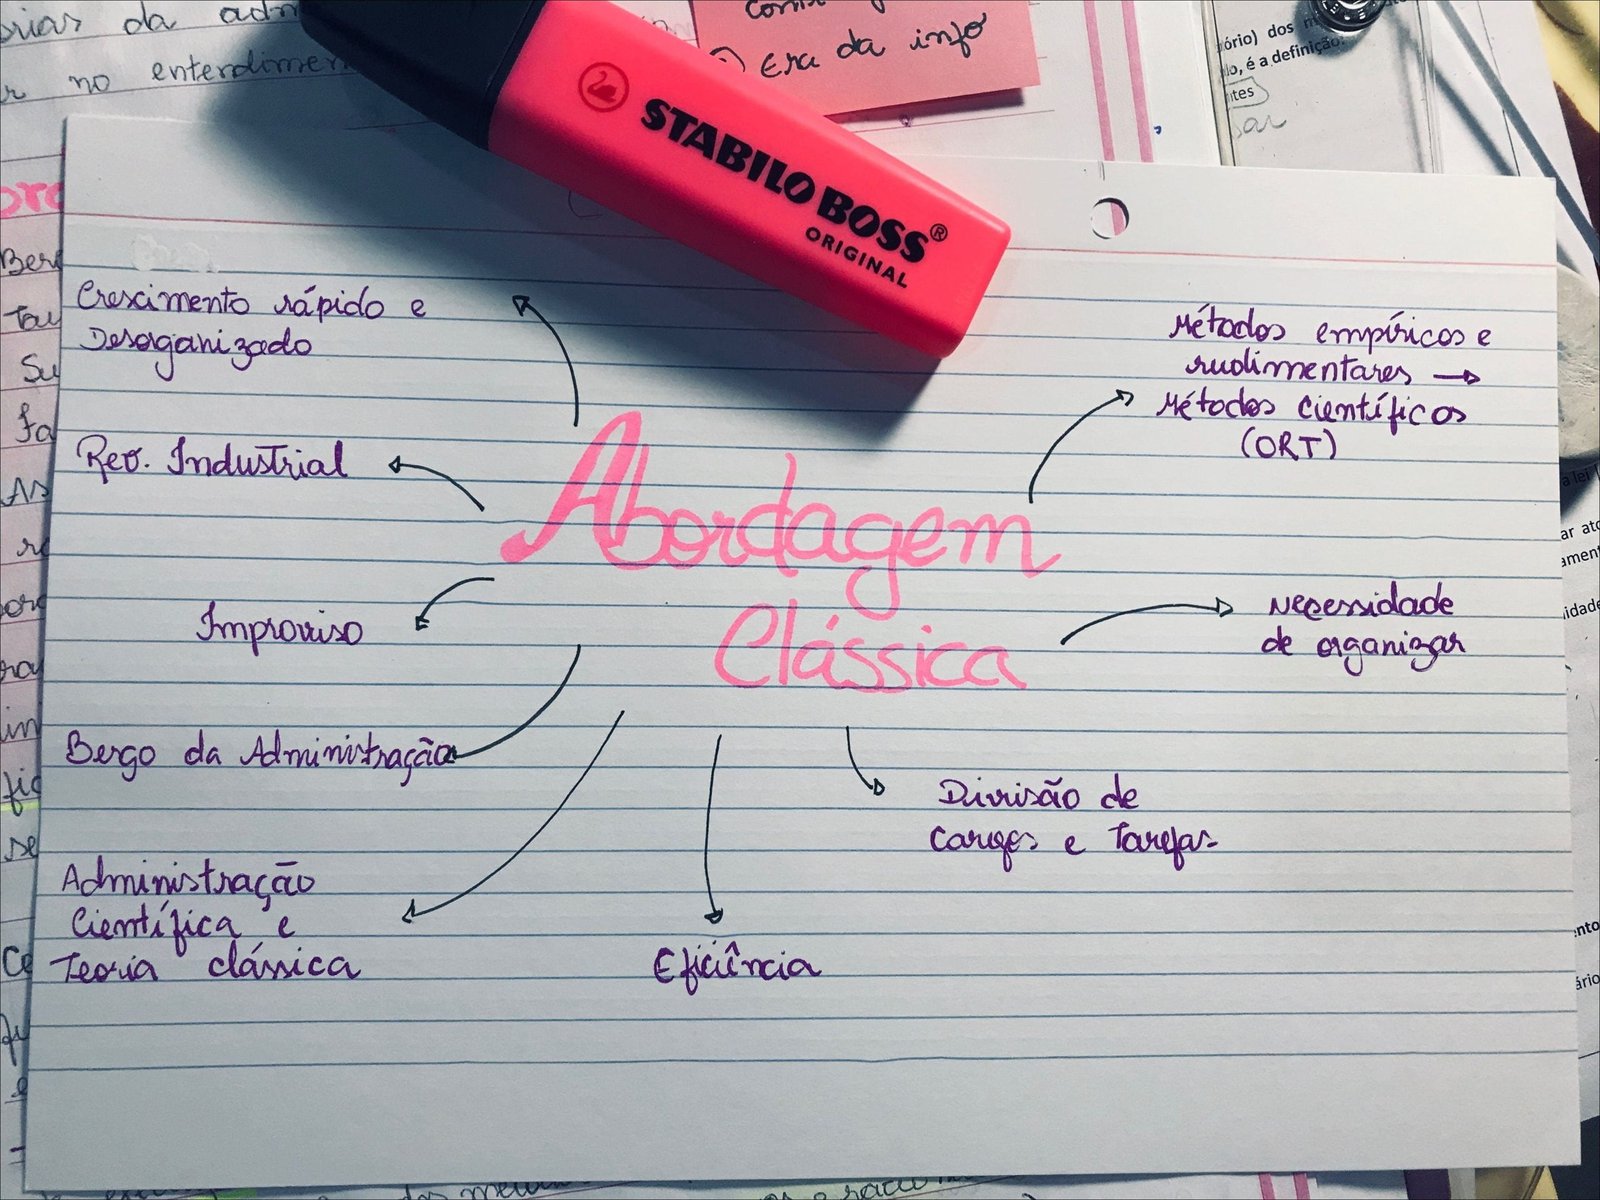 orias da adm
r no entendimen
Era da info
ório) dos m
lo, é a definição
ntes
sar
STABILO BOSS®
ORIGINAL
Crescimento rápido e
Desorganizado
Rev. Industrial
Improviso
Berço da Administração
Administração
Científica e
Teoria clássica
Abordagem
Clássica
Eficiência
Divisão de
Cargos e Tarefas
Necessidade
de organizar
Métodos empíricos e
rudimentares →
Métodos Científicos
(ORT)